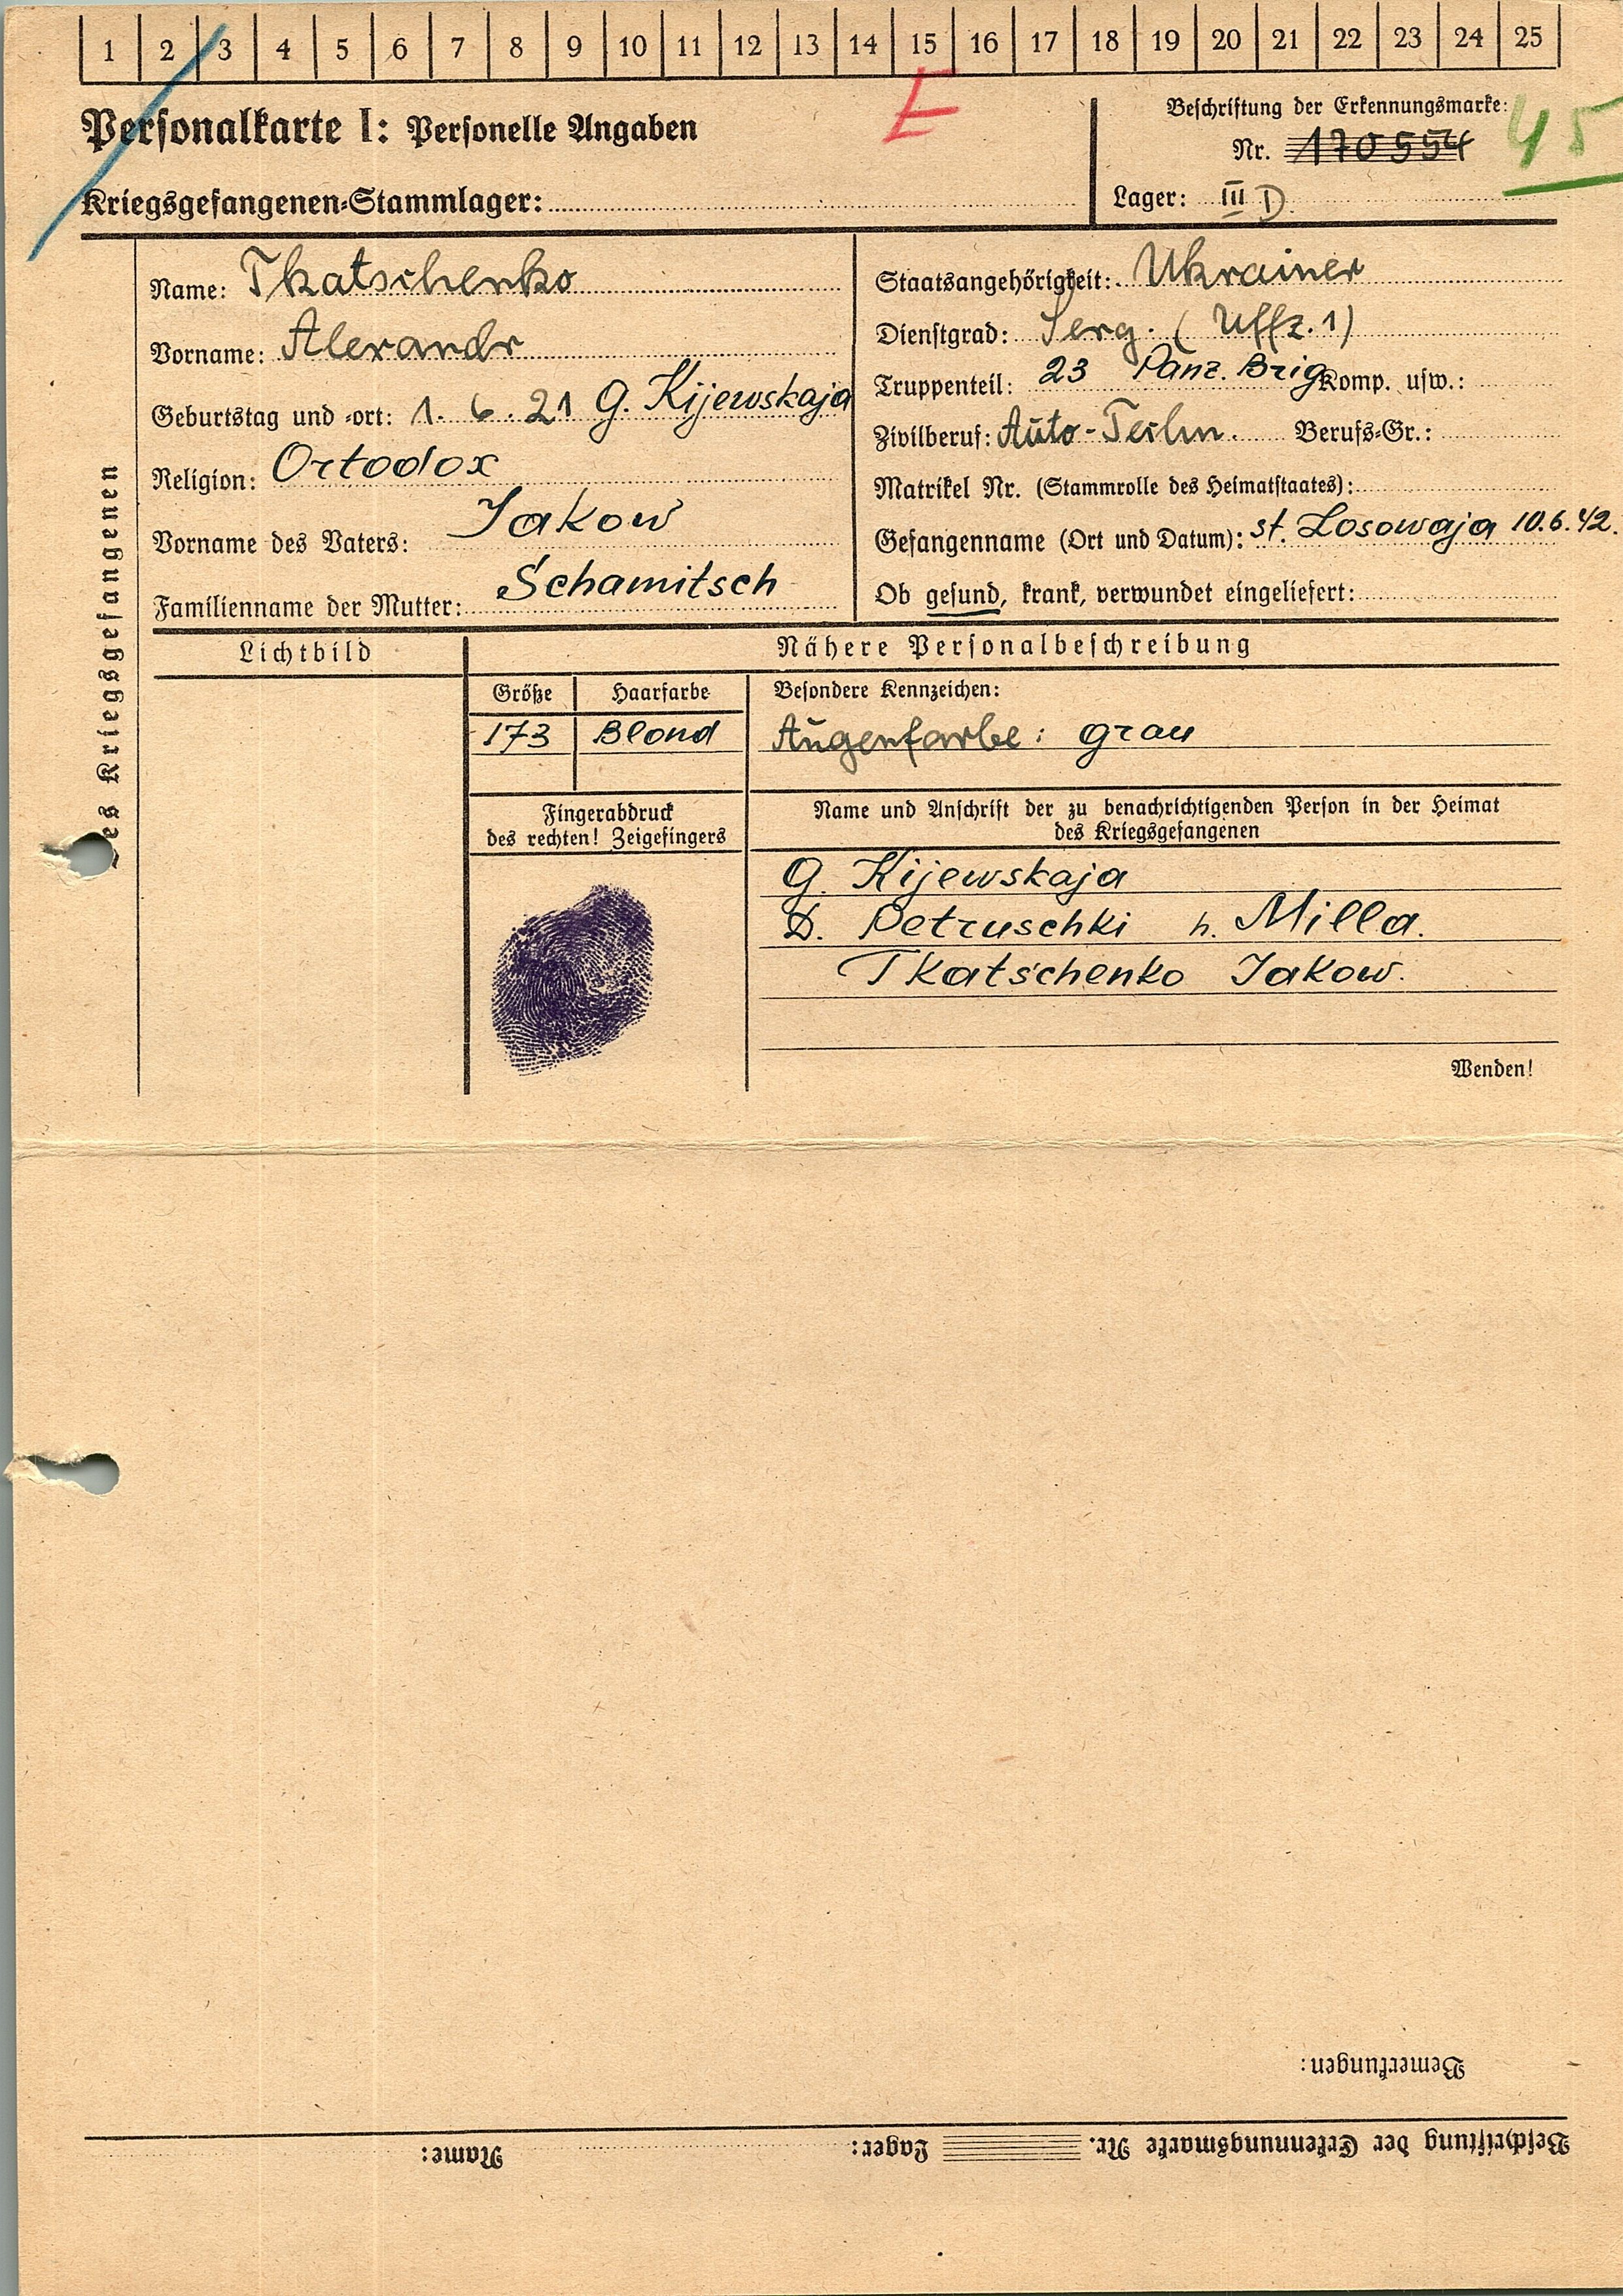 1 2 3 4 5 6 7 8 9 10 11 12 13 14 15 16 17 18 19 20 21 22 23 24 25
Personalkarte I: Personelle Angaben
E
Kriegsgefangenen-Stammlager:
Beschriftung der Erkennungsmarke:
Nr. 170554
45
Lager: III D.
des Kriegsgefangenen
Name: Tkatschenko
Vorname: Alexandr
Geburtstag und -ort: 1. 6. 21 G. Kijewskaja
Religion: Ortodox
Vorname des Vaters: Jakow
Familienname der Mutter: Schamitsch
Staatsangehörigkeit: Ukrainer
Dienstgrad: Serg. (Uffz. 1)
Truppenteil: 23 Panz. Brig Komp. usw.:
Zivilberuf: Auto-Techn. Berufs-Gr.:
Matrikel Nr. (Stammrolle des Heimatstaates):
Gefangenname (Ort und Datum): st. Losowaja 10.6.42.
Ob gesund, krank, verwundet eingeliefert:
Lichtbild
Nähere Personalbeschreibung
Größe Haarfarbe Besondere Kennzeichen:
173 Blond Augenfarbe: grau
Fingerabdruck
des rechten! Zeigefingers
Name und Anschrift der zu benachrichtigenden Person in der Heimat
des Kriegsgefangenen
G. Kijewskaja
D. Petruschki h. Milla.
Tkatschenko Jakow.
Wenden!
Bemerkungen:
Beschriftung der Erkennungsmarke Nr. Lager: Name: